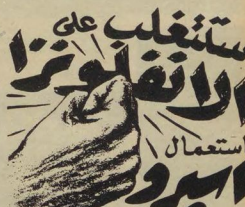 ستتغلب على
الانفلونزا
باستعمال
اسبرو